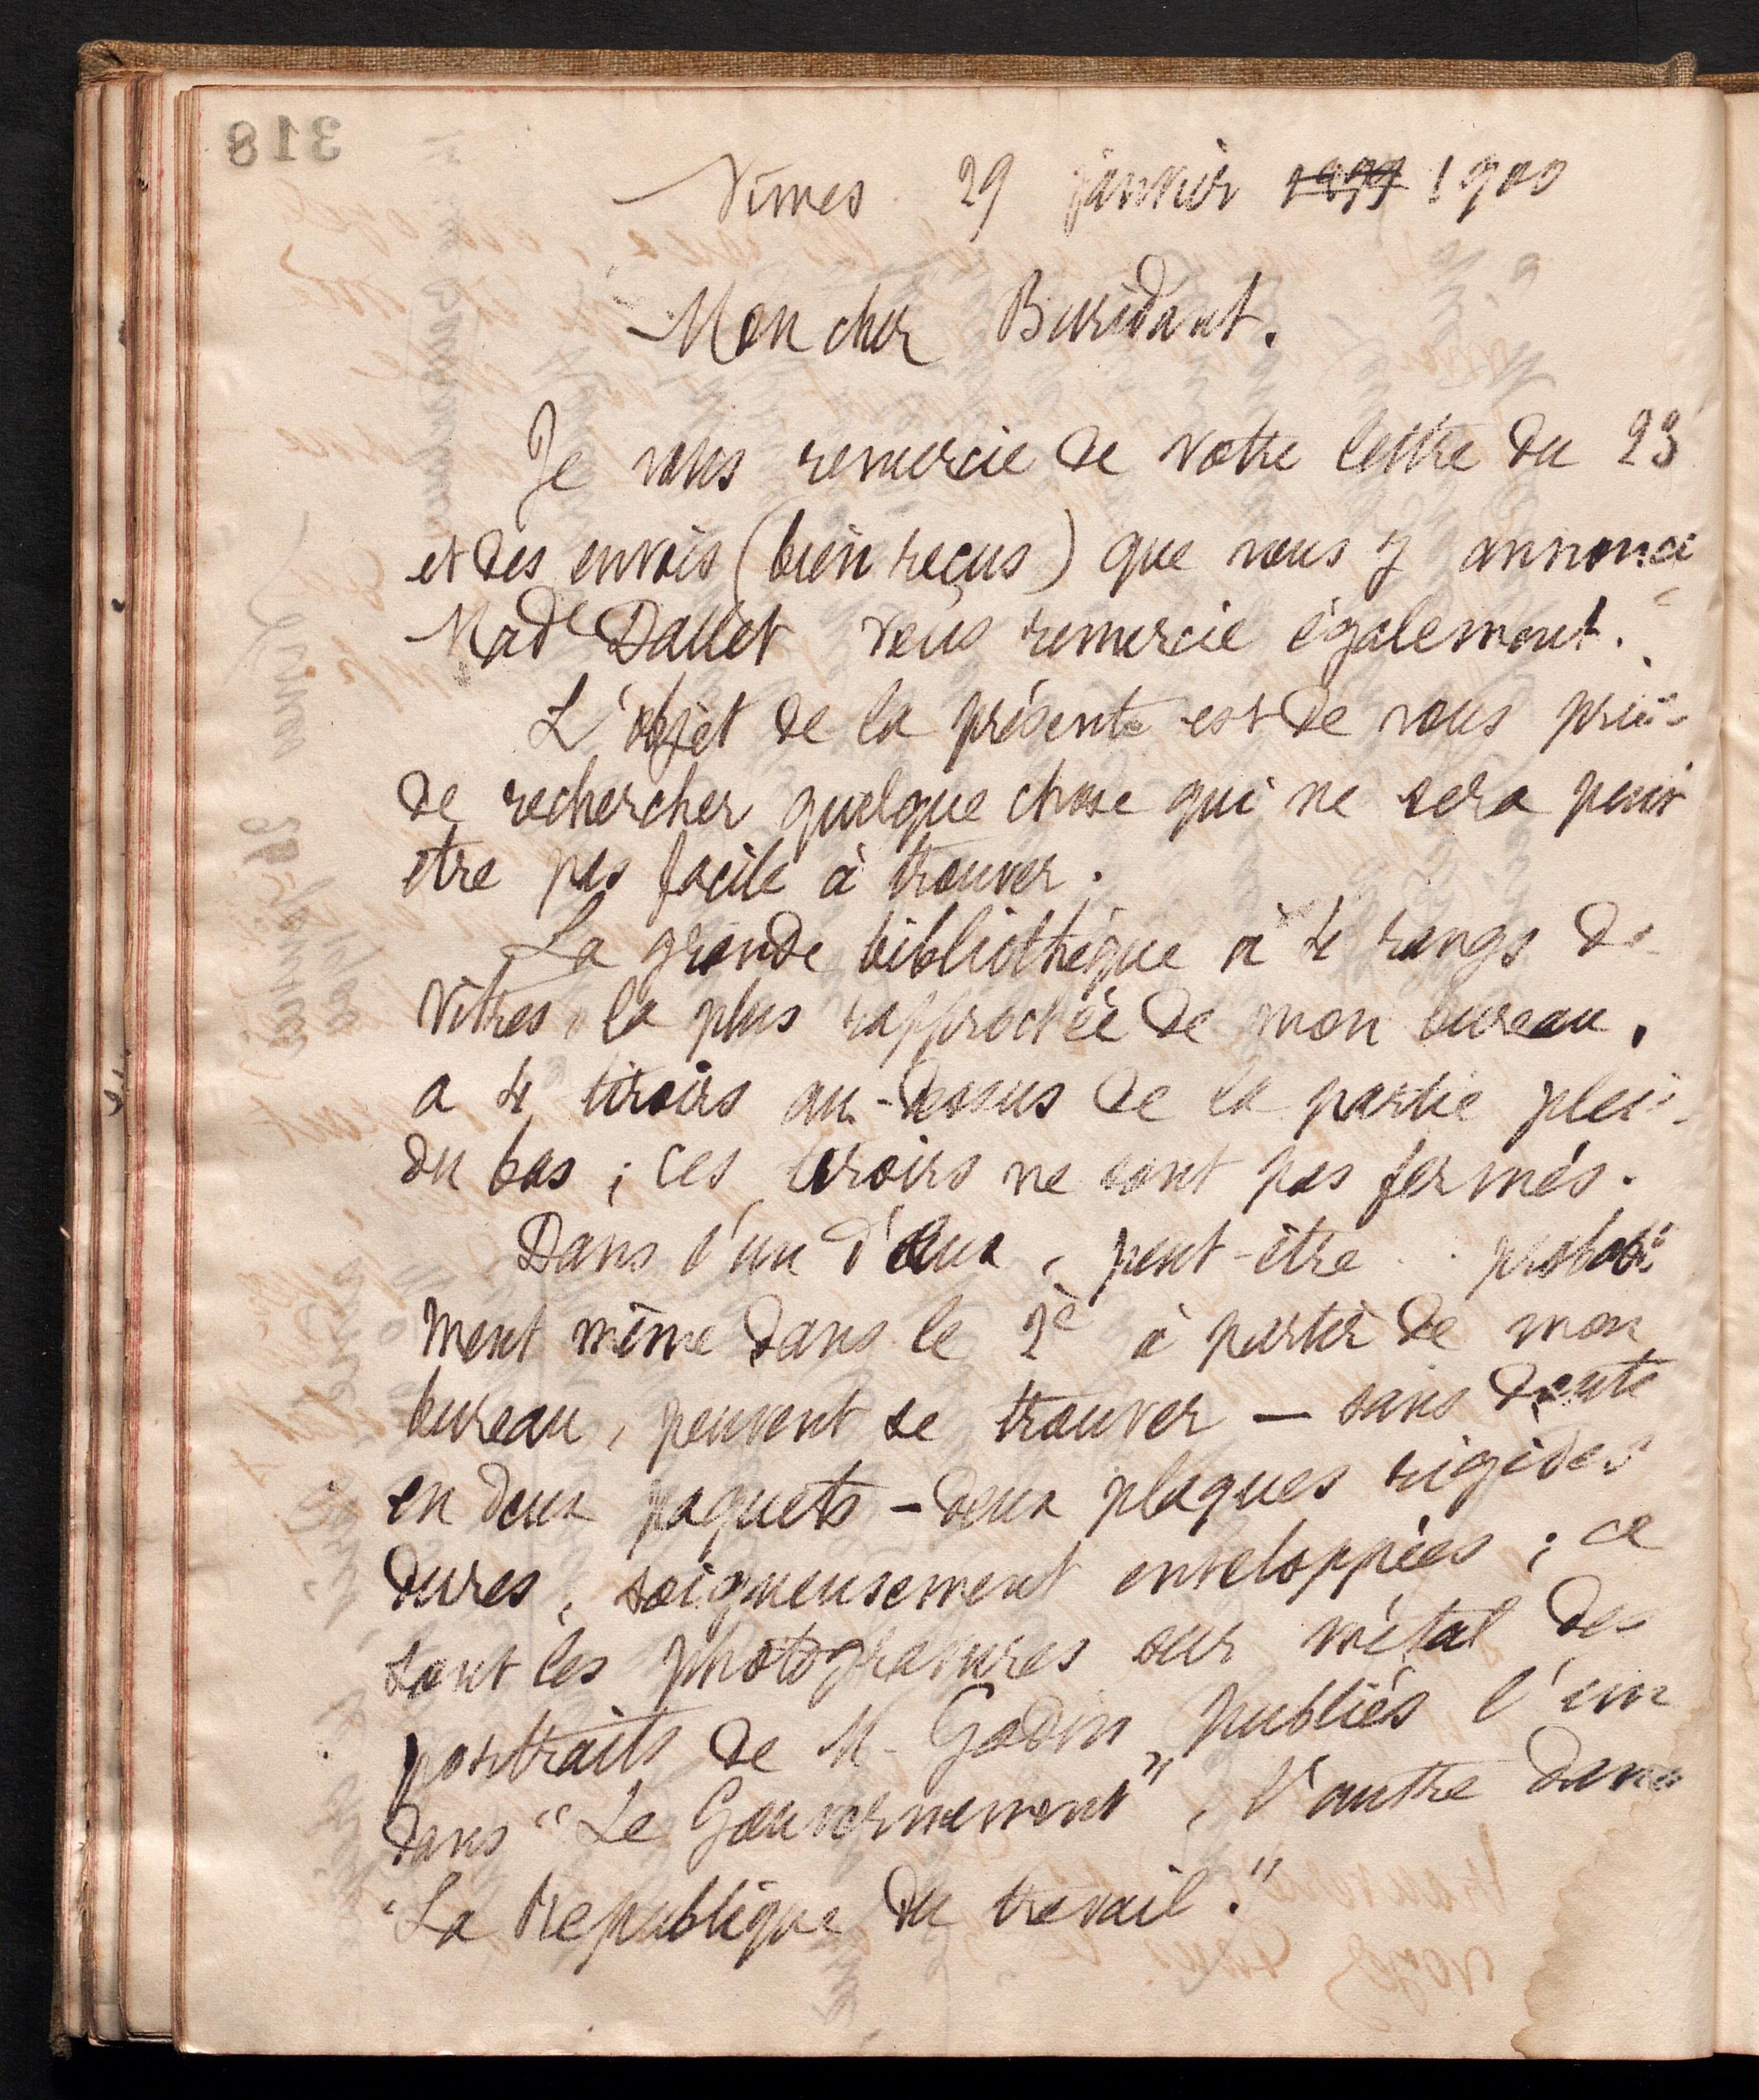 318
Nîmes 29 janvier 1899 1900
Mon cher Buridant.
Je vous remercie de votre lettre du 23
et des envois (bien reçus) que vous y annonce
Made Dallet vous remercie également.
L'objet de la présente est de vous prier
de rechercher quelque chose qui ne sera peut
etre pas facile à trouver.
La grande bibliothèque à 4 rangs de
vitres, la plus rapprochée de mon bureau,
a 4 tiroirs au-dessus de la partie plei
du bas ; ces tiroirs ne sont pas fermés.
Dans l'un d'eux, peut-être probable
ment même dans le 2e à partir de mon
bureau, peuvent se trouver — sans doute
en deux paquets — deux plaques rigides
dures, soigneusement enveloppées ; ce
sont les photogravures sur métal des
portraits de M. Godin, publiés l'un
dans "Le Gouvernement", l'autre dans
"La République du travail."